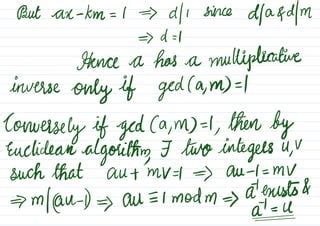 But ax-km=1 ⇒ d/1 since d/a & d/m
⇒ d=1
Hence a has a multiplicative
inverse only if gcd(a,m)=1
Conversely if gcd(a,m)=1, then by
Euclidean algorithm, ∃ two integers u,v
such that au+mv=1 ⇒ au-1=mv
⇒ m|(au-1) ⇒ au≡1 mod m ⇒ a⁻¹ exists &
a⁻¹=u